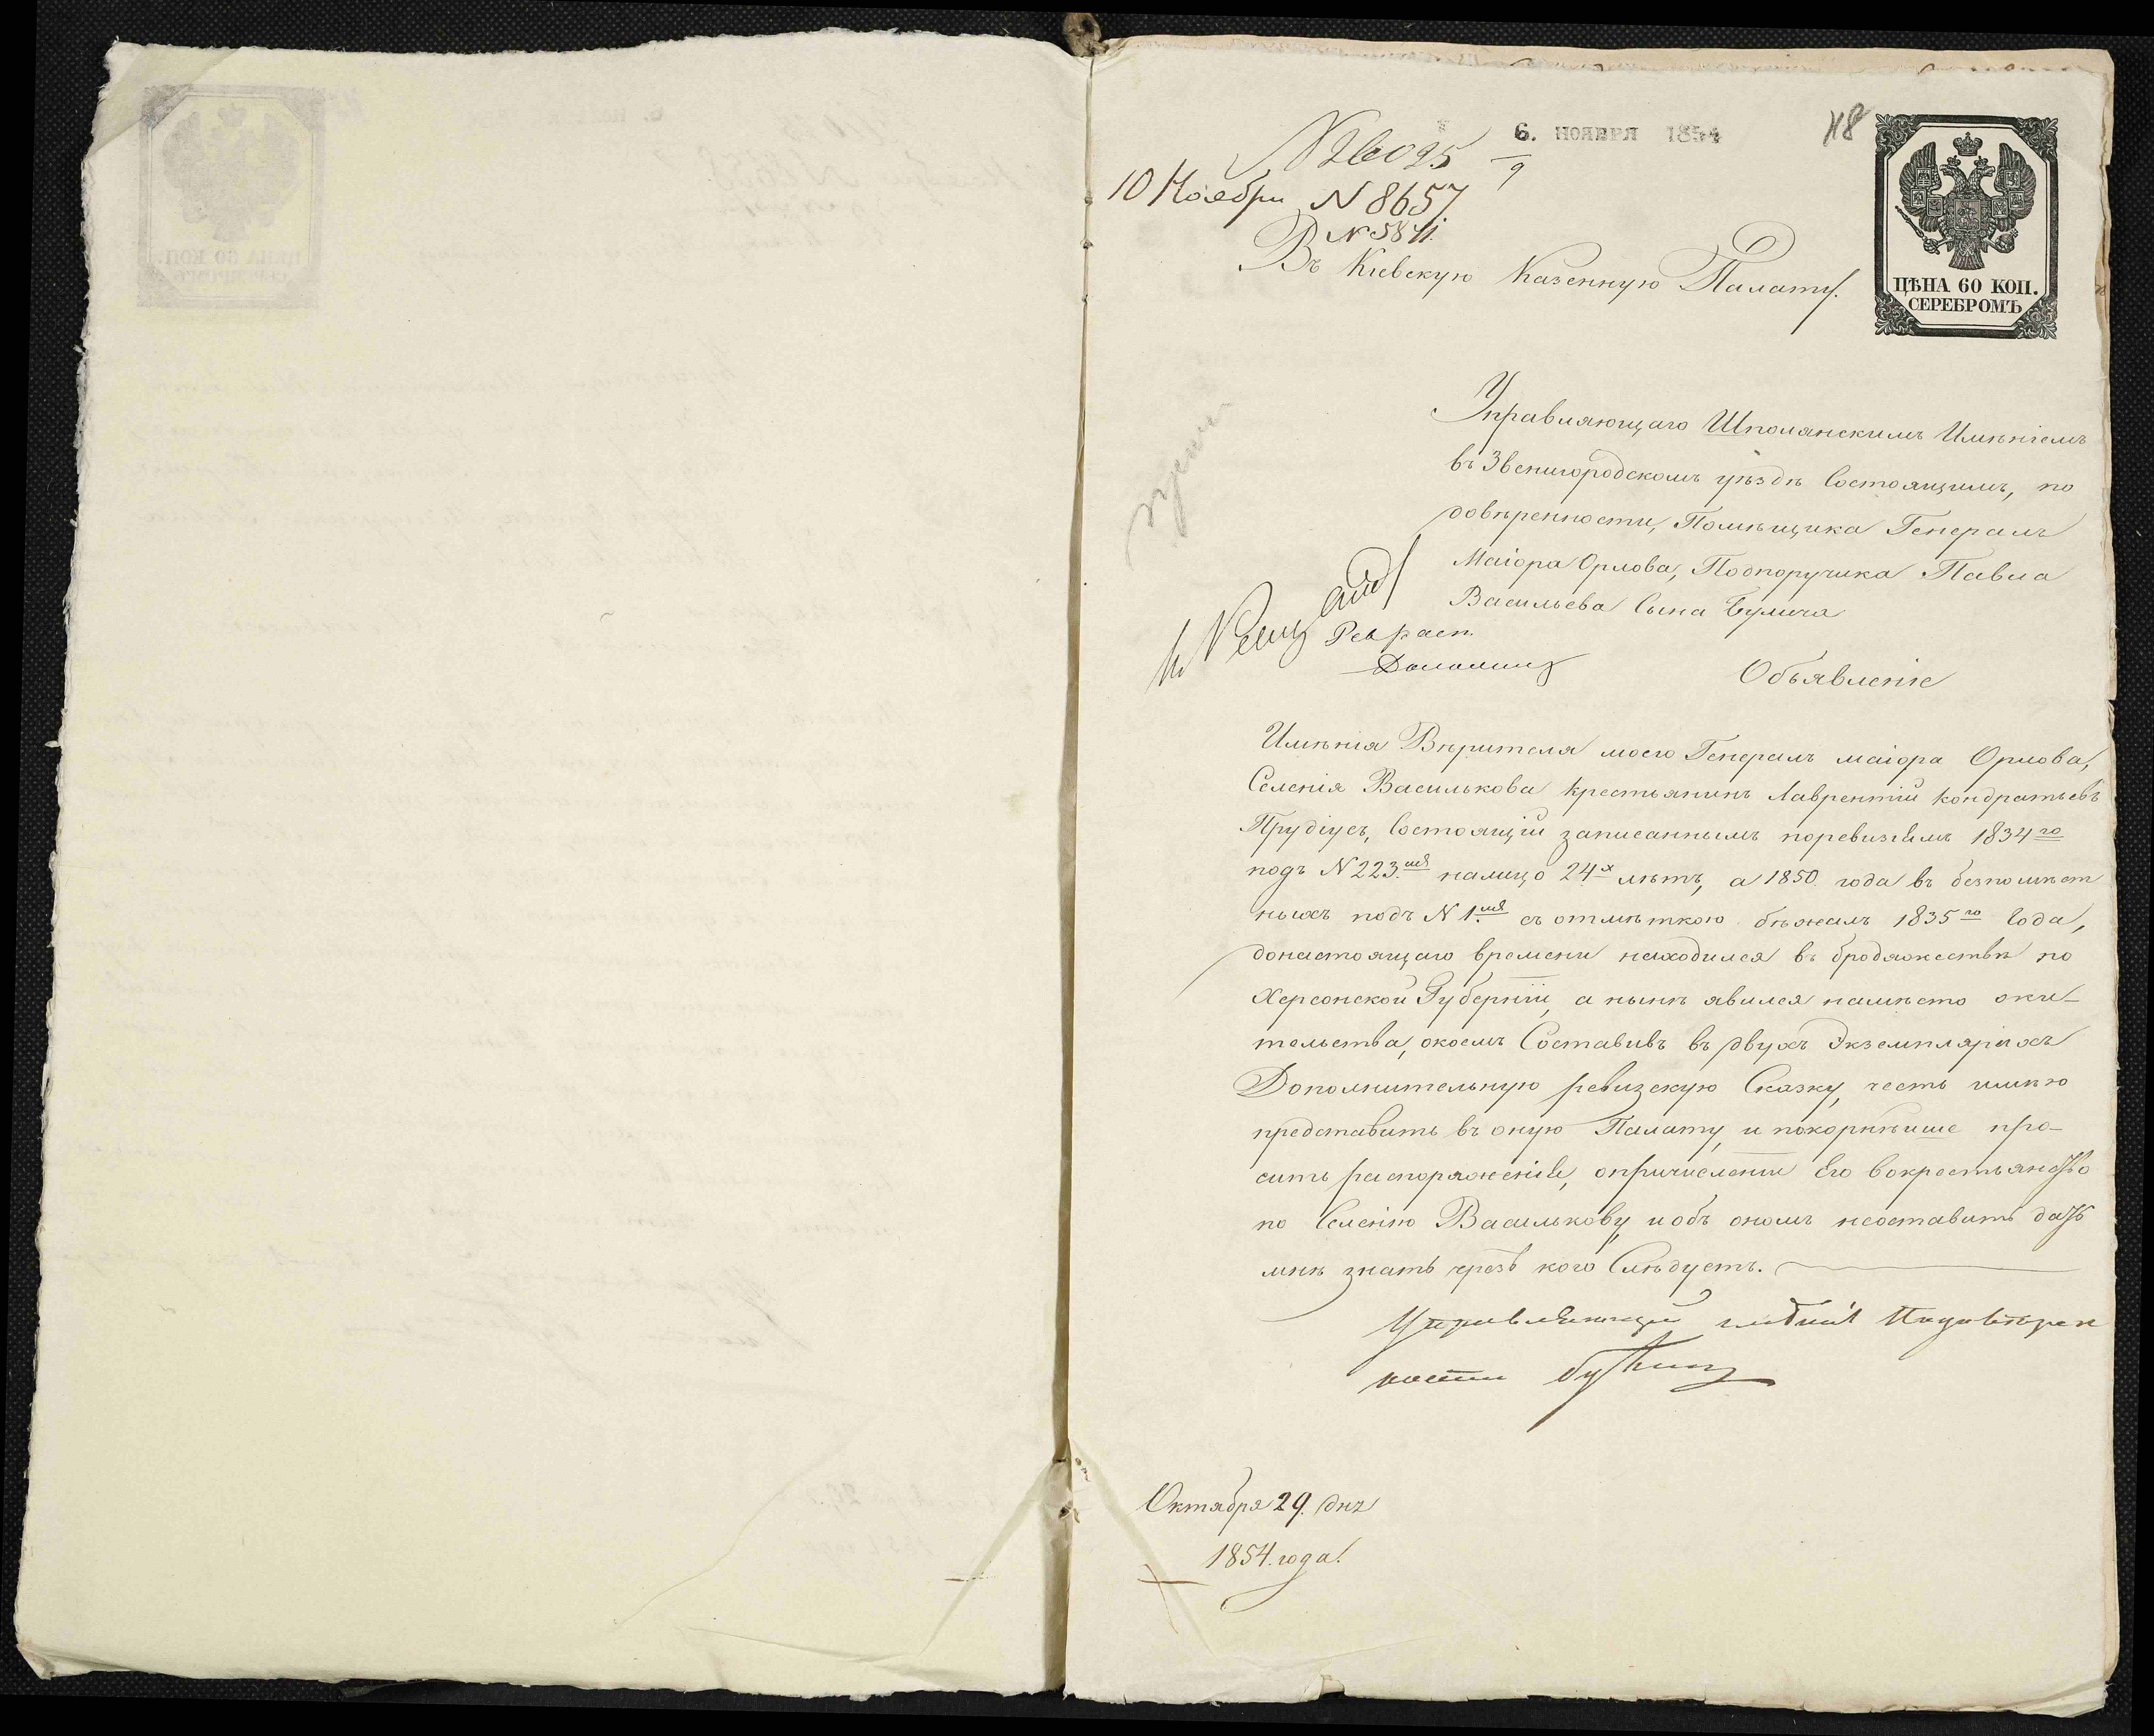 6. НОЯБРЯ 1854
48
№ 26025
9
10 Ноября N 8657
N 5871.
Въ Кіевскую Казенную Палату.
ЦѢНА 60 КОП.
СЕРЕБРОМЪ
Управляющаго Шполянскимъ Имѣніемъ
въ Звенигородскомъ уѣздѣ Состоящимъ, по
довѣренности, Помѣщика Генералъ
Маіора Орлова, Подпоручика Павла
Васильева Сына Булича
Объявленіе
Имѣнія Вѣрителя моего Генералъ маіора Орлова,
Селенія Василькова Крестьянинъ Лаврентій Кондратьевъ
Прудіусъ, Состоящій записаннымъ поревизіямъ 1834го
подъ N 223.мъ налицо 24х лѣтъ, а 1850 года въ безпомѣст
ныхъ подъ N 1.мъ съ отмѣткою бѣжалъ 1835го Года,
донастоящаго времени находился въ бродяжествѣ по
Херсонской Губерніи, а нынѣ явился намѣсто жи-
тельства, окоемъ Составивъ въ двухъ Экземплярахъ
Дополнительную ревизскую Сказку, честь имѣю
представить въ оную Палату, и покорнѣише про-
сить распоряженія, опричисленіи Его вокрестьянство
по Селенію Василькову, и объ ономъ неоставить дать
мнѣ знать чрезъ кого Слѣдуетъ.
Управляющій имѣніемъ Подовѣрен
ности
Октября 29. дня
1854. года.